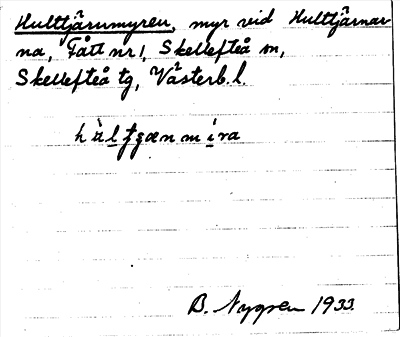 Hulttjärnmyren, myr vid Hulttjärnar-
na, Fått nr 1, Skellefteå sn,
Skellefteå tg, Västerb. l.
B. Nygren 1933.